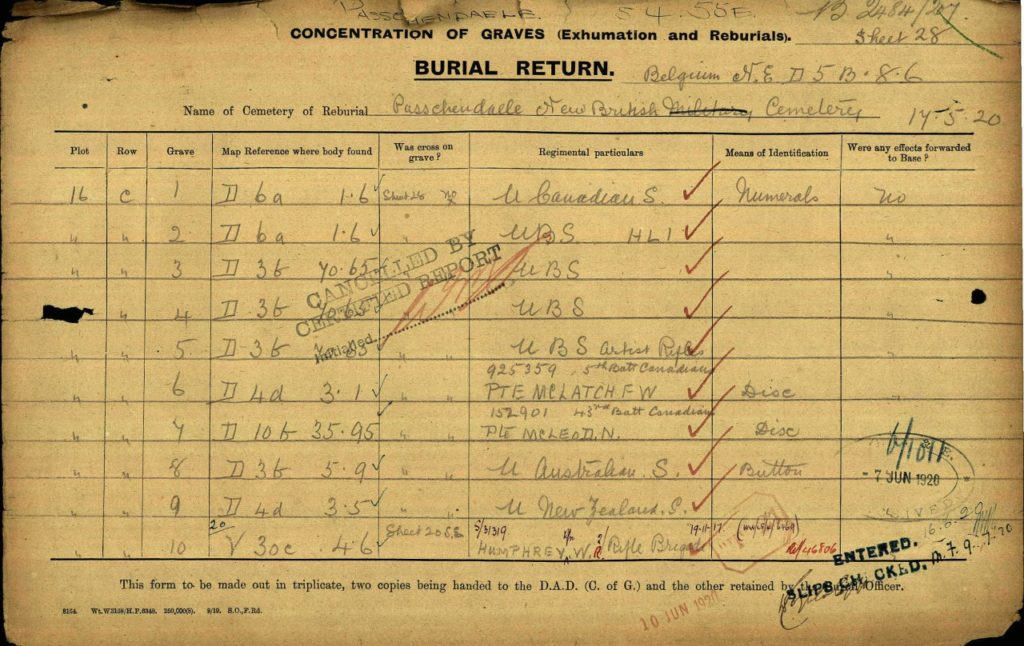 PASSCHENDAELE. 54.55E. B 2484/207
CONCENTRATION OF GRAVES (Exhumation and Reburials). Sheet 28
BURIAL RETURN. Belgium N.E D 5 B. 8.6
Name of Cemetery of Reburial Passchendaele New British Military Cemetery 14-5-20
Plot Row Grave Map Reference where body found Was cross on grave? Regimental particulars Means of Identification Were any effects forwarded to Base?
16 C 1 D 6a 1.6 Sheet 28 No U Canadian S. Numerals No
" " 2 D 6a 1.6 " " U B S HLI "
" " 3 D 3b 40.65 U B S "
" " 4 D 3b U B S "
CANCELLED BY
CERTIFIED REPORT
Initialled
" " 5 D 3b " U B S Artist Rifles
925359 5th Batt Canadian
" " 6 D 4d 3.1 " " PTE MCLATCH F W Disc "
152901 43rd Batt Canadian
" " 7 D 10b 35.95 " " Pte MCLEOD. N. Disc
" " 8 D 3b 5.9 " " U Australian. S. Button
- 7 JUN 1920
" " 9 D 4d 3.5 " " U New Zealand. S.
20 Sheet 20 S.E S/31319. 19-11-17
" " 10 V 30c 4.6 HUMPHREY, W. Rifle Brigade 46806
ENTERED.
SLIPS CHECKED.
This form to be made out in triplicate, two copies being handed to the D.A.D. (C. of G.) and the other retained by the Officer.
8154. Wt.W3158/H.P.6348. 250,000(8). 9/19. S.O.,F.Rd.
10 JUN 1920